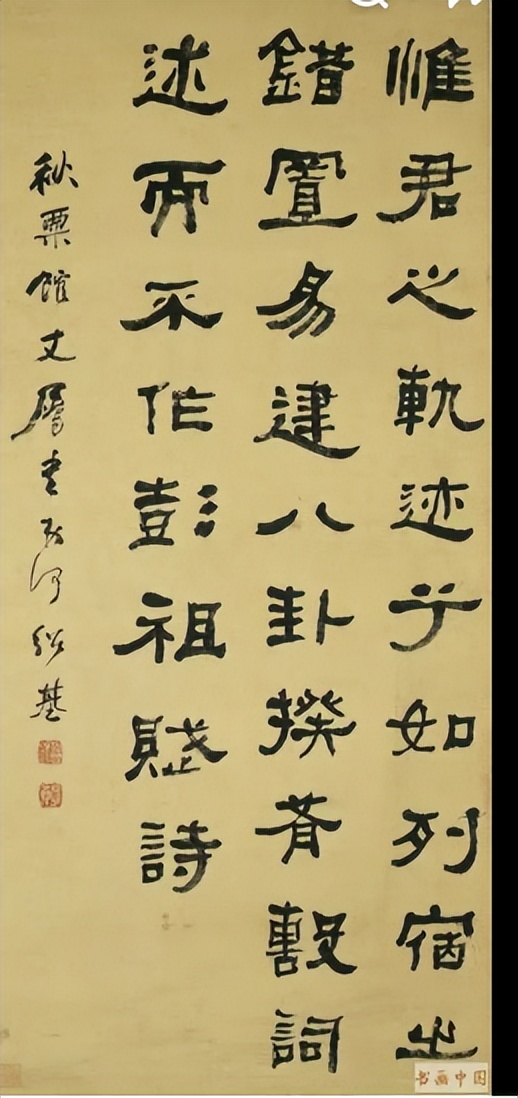 惟君之軌迹兮如列宿之
錯置易建八卦揆肴毄詞
述而不作彭祖賦詩
秋粟館丈屬書弟何紹基
书画中国